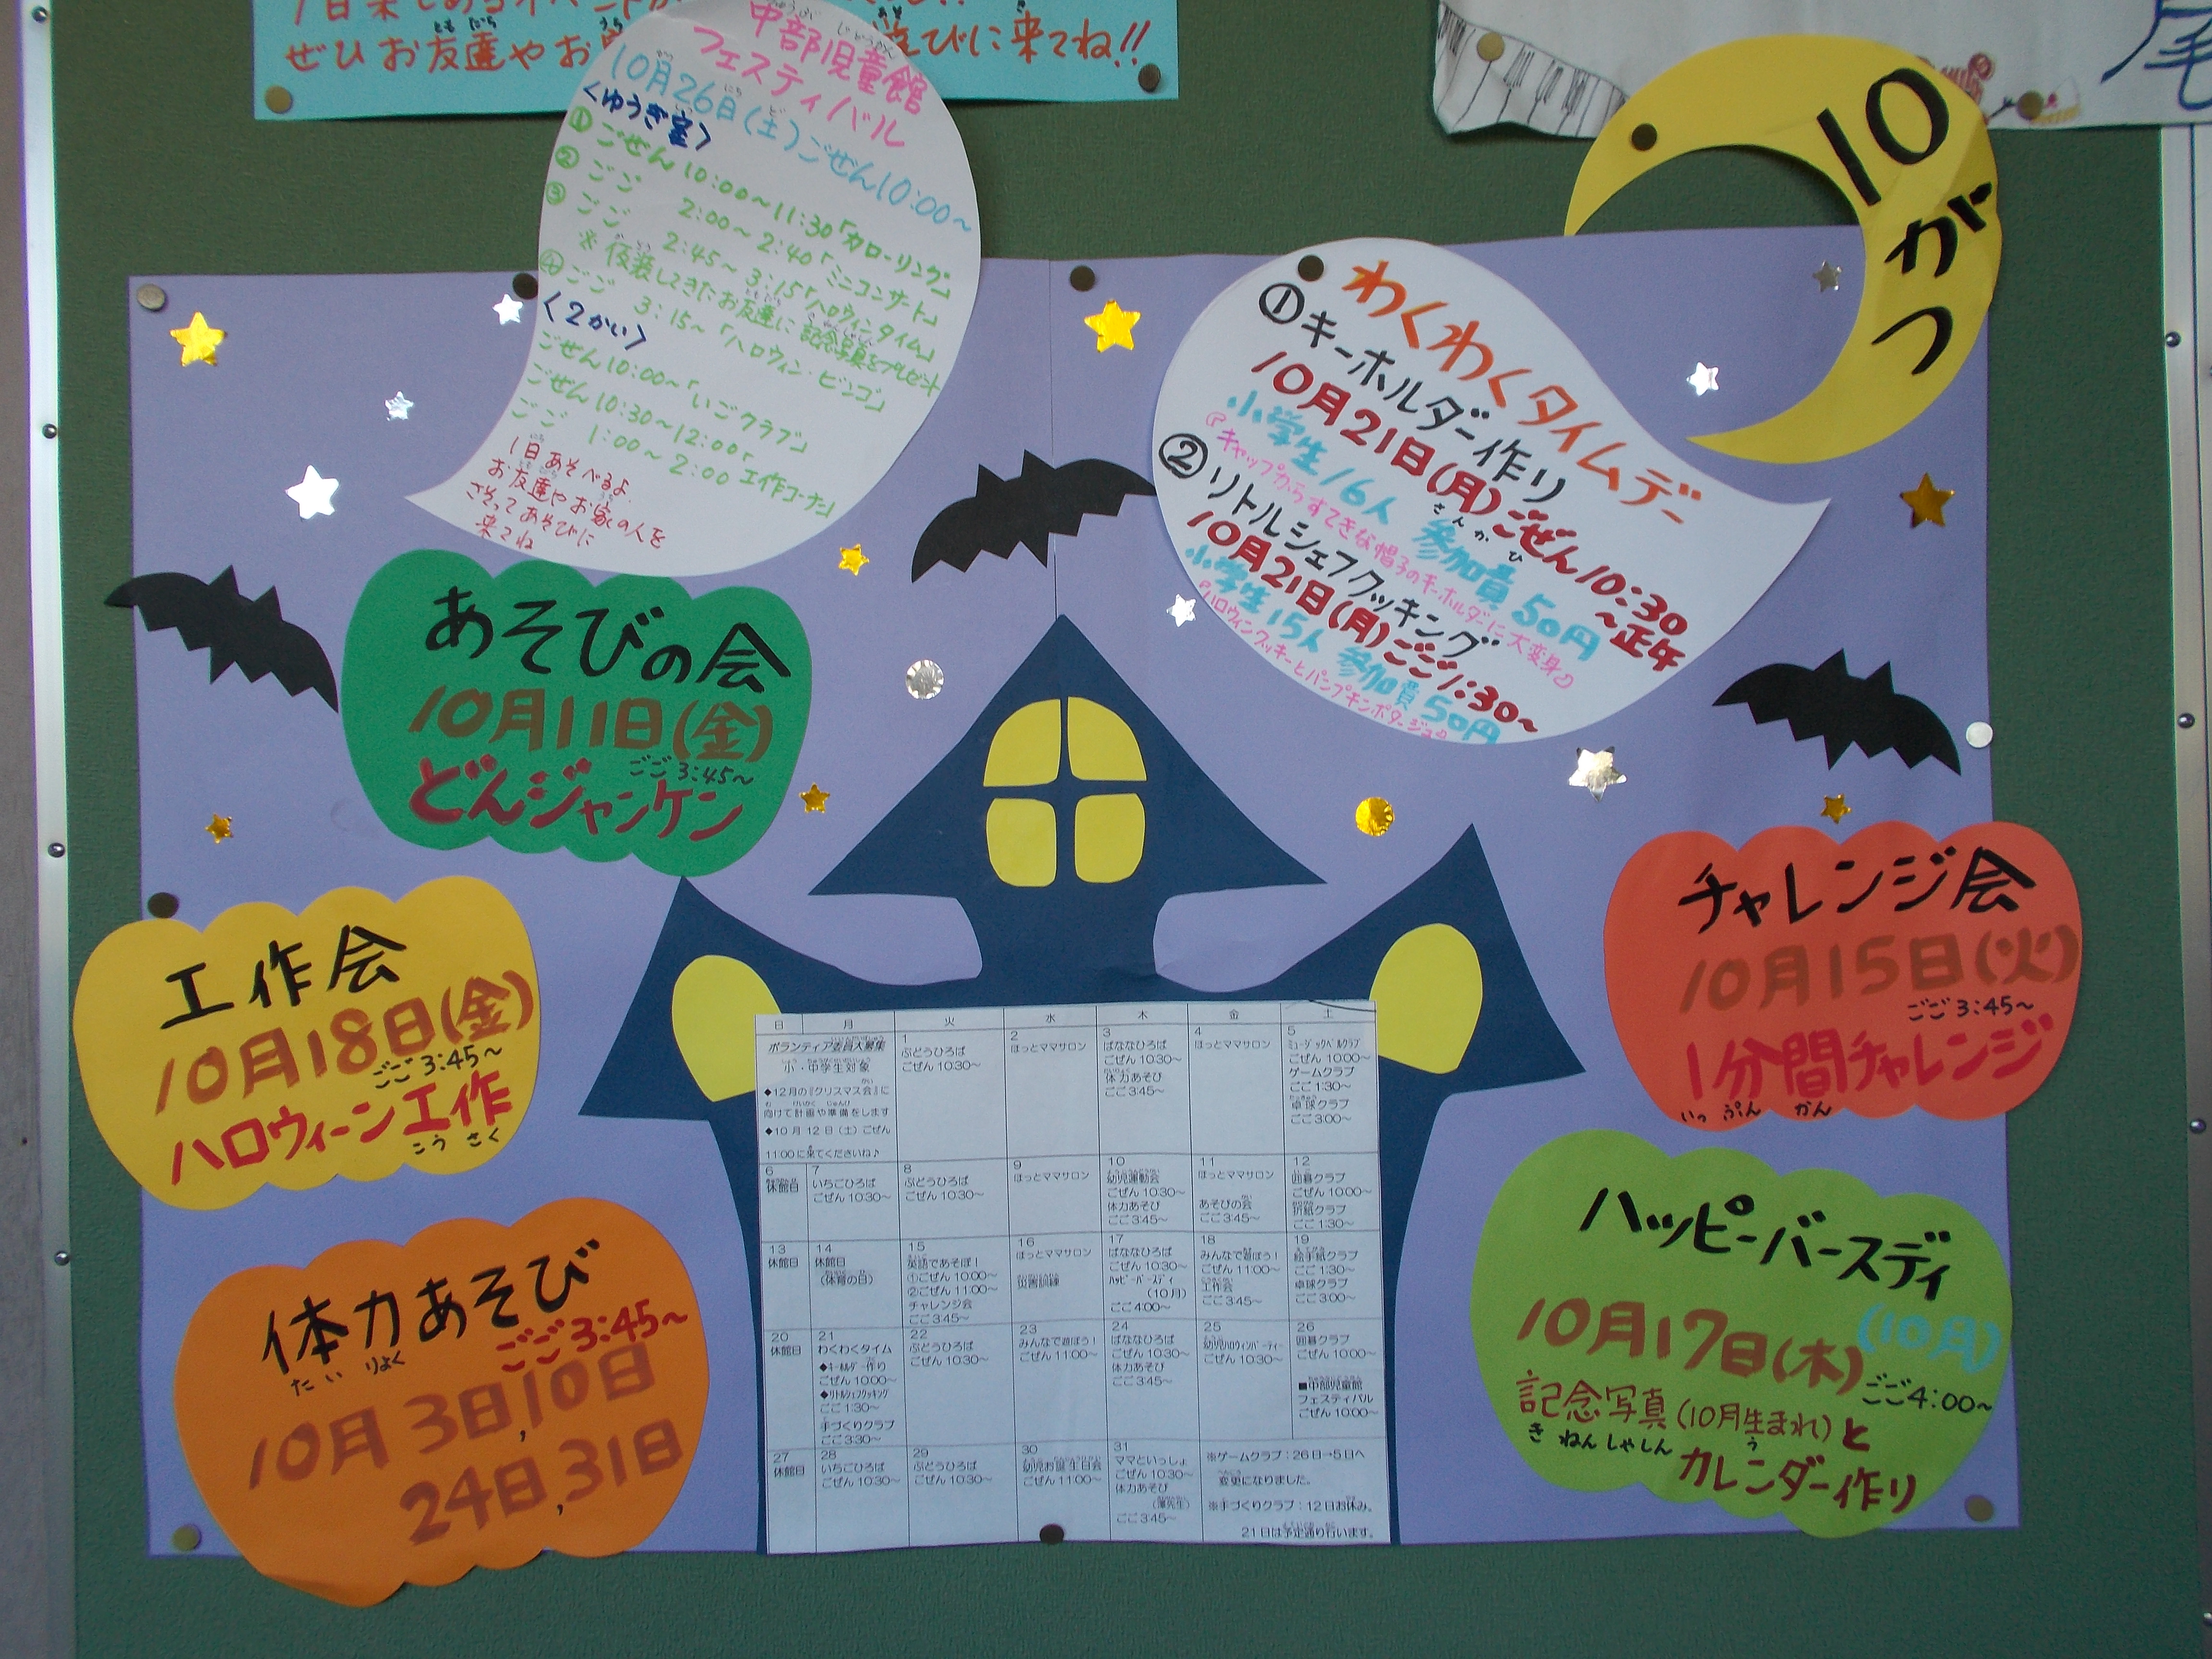 ぜひお友達やお
びに来てね!!
中部児童館
フェスティバル
10月26日(土)ごぜん10:00~
<ゆうぎ室>
①ごぜん10:00~11:30「カローリング」
②ごご 2:00~2:40「ミニコンサート」
③ごご 2:45~3:15「ハロウィンタイム」
※仮装してきたお友達に記念写真をプレゼント
④ごご 3:15~「ハロウィン・ビンゴ」
<2かい>
ごぜん10:00~「いごクラブ」
ごぜん10:30~12:00「
ごご 1:00~2:00 工作コーナー」
1日あそべるよ。
お友達やお家の人を
さそってあそびに
来てね
10がつ
わくわくタイムデー
①キーホルダー作り
10月21日(月)ごぜん10:30
~正午
小学生16人 参加費50円
さんかひ
『キャップからすてきな帽子のキーホルダーに大変身♪
②リトルシェフクッキング
10月21日(月)ごご1:30~
小学生15人 参加費50円
『ハロウィンクッキーとパンプキンポタージュ♪
あそびの会
10月11日(金)
ごご3:45~
どんジャンケン
工作会
10月18日(金)
ごご3:45~
ハロウィーン工作
こうさく
体力あそび
たいりょく
ごご3:45~
10月3日,10日
24日,31日
チャレンジ会
10月15日(火)
ごご3:45~
1分間チャレンジ
いっぷんかん
ハッピーバースディ
(10月)
10月17日(木)
ごご4:00~
記念写真(10月生まれ)と
きねんしゃしん う
カレンダー作り
日 月 火 水 木 金 土
ボランティア委員大募集
小・中学生対象
◆12月の『クリスマス会』に
向けて計画や準備をします
◆10月12日(土)ごぜん
11:00に来てくださいね♪
1
ぶどうひろば
ごぜん10:30~
2
ほっとママサロン
3
ばななひろば
ごぜん10:30~
体力あそび
ごご3:45~
4
ほっとママサロン
5
ミュージックベルクラブ
ごぜん10:00~
ゲームクラブ
ごご1:30~
卓球クラブ
ごご3:00~
6
休館日
7
いちごひろば
ごぜん10:30~
8
ぶどうひろば
ごぜん10:30~
9
ほっとママサロン
10
幼児運動会
ごぜん10:30~
体力あそび
ごご3:45~
11
ほっとママサロン
あそびの会
ごご3:45~
12
囲碁クラブ
ごぜん10:00~
折紙クラブ
ごご1:30~
13
休館日
14
休館日
(体育の日)
15
英語であそぼ!
①ごぜん10:00~
②ごぜん11:00~
チャレンジ会
ごご3:45~
16
ほっとママサロン
災害訓練
17
ばななひろば
ごぜん10:30~
ハッピーバースディ
(10月)
ごご4:00~
18
みんなで遊ぼう!
ごぜん11:00~
工作会
ごご3:45~
19
絵手紙クラブ
ごご1:30~
卓球クラブ
ごご3:00~
20
休館日
21
わくわくタイム
◆キーホルダー作り
ごぜん10:00~
◆リトルシェフクッキング
ごご1:30~
手づくりクラブ
ごご3:30~
22
ぶどうひろば
ごぜん10:30~
23
みんなで遊ぼう!
ごぜん11:00~
24
ばななひろば
ごぜん10:30~
体力あそび
ごご3:45~
25
幼児ハロウィンパーティー
ごぜん10:30~
26
囲碁クラブ
ごぜん10:00~
■中部児童館
フェスティバル
ごぜん10:00~
27
休館日
28
いちごひろば
ごぜん10:30~
29
ぶどうひろば
ごぜん10:30~
30
幼児お誕生日会
ごぜん11:00~
31
ママといっしょ
ごぜん10:30~
体力あそび
ごご3:45~
※ゲームクラブ:26日→5日へ
変更になりました。
※手づくりクラブ:12日お休み。
21日は予定通り行います。